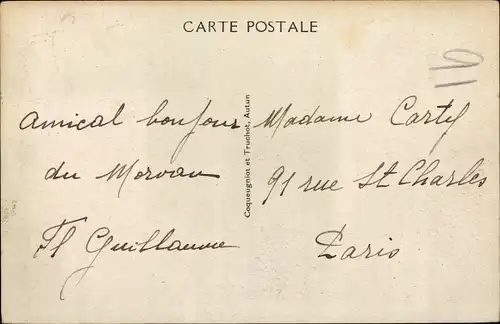 CARTE POSTALE
16
Amical bonjour
du Morvan
Fl Guillaume
Coqueugniot et Truchot, Autun
Madame Carty
91 rue St Charles
Paris